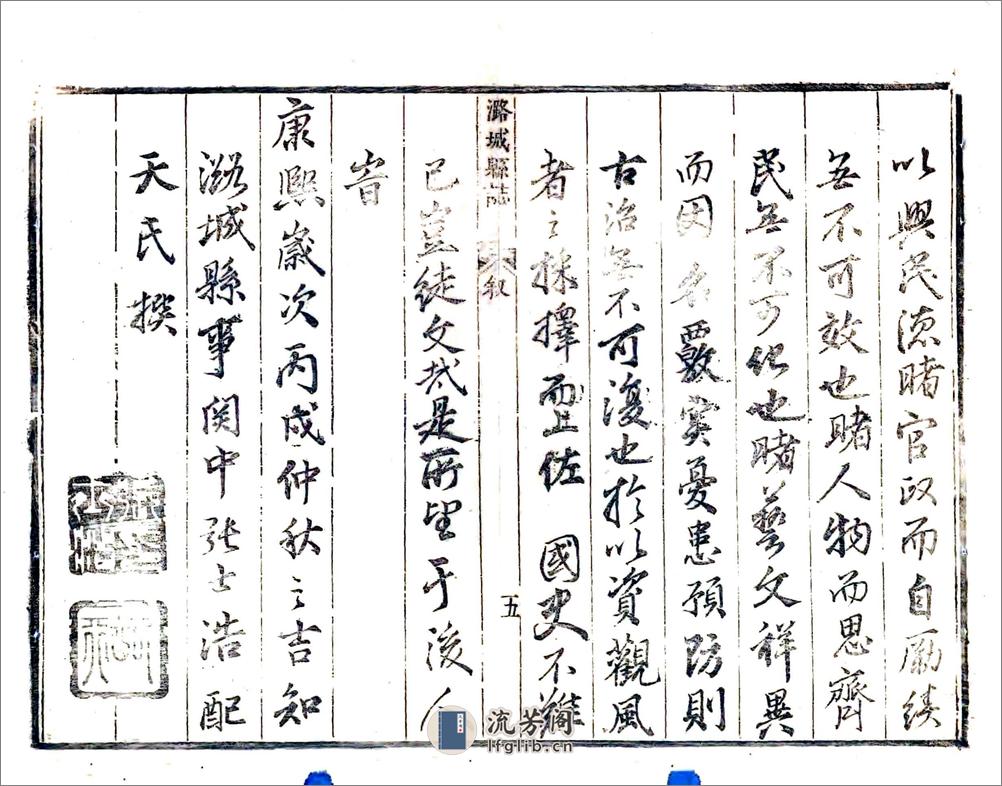 以興民德睹官政而自勵績
無不可效也睹人物而思齊
民無不可化也睹藝文祥異
而因名覈實憂患預防則
古治無不可復也於以資觀風
者之採擇而上佐 國史不難
已豈徒文哉是所望于後人
潞城縣志
叙
五
旹
康熙歲次丙戌仲秋之吉知
潞城縣事関中張士浩配
天氏撰
流芳阁
lfglib.cn